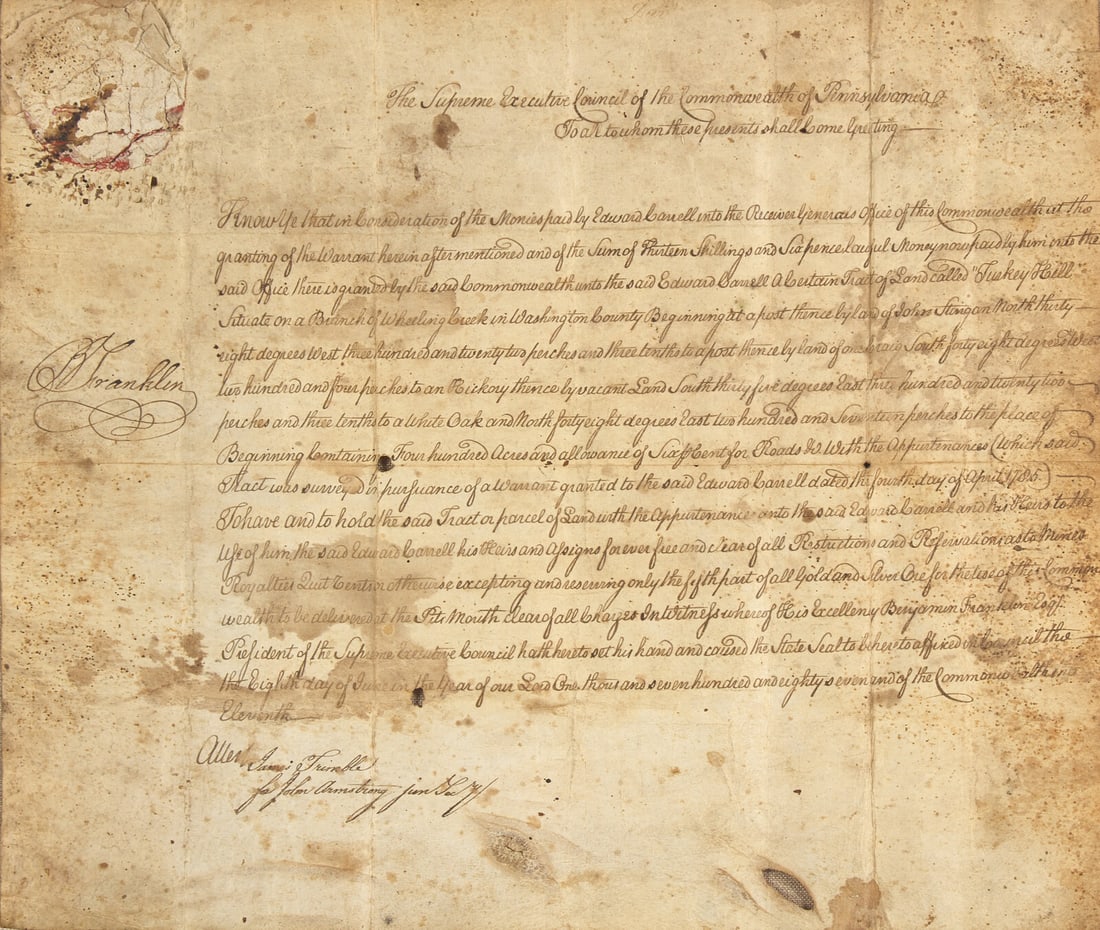 The Supreme Executive Council of the Commonwealth of Pennsylvania
To all to whom these presents shall Come Greeting
Know Ye that in Consideration of the Monies paid by Edward Carrell into the Receiver Generals Office of this Commonwealth at the
granting of the Warrant herein after mentioned and of the Sum of Thirteen Shillings and Sixpence lawful Money now paid by him into the
said Office there is granted by the said Commonwealth unto the said Edward Carrell A Certain Tract of Land called "Turkey Hill
Situate on a Branch of Wheeling Creek in Washington County Beginning at a post thence by land of John North thirty
eight degrees West three hundred and twenty two perches and three tenths to a post thence by land of South forty eight degrees West
two hundred and four perches to an Hickory thence by vacant Land South thirty five degrees East three hundred and twenty two
perches and three tenths to a White Oak and North forty eight degrees East two hundred and Seventeen perches to the place of
Beginning Containing Four hundred Acres and allowance of Six Cent for Roads &c. With the Appurtenances (Which said
Tract was surveyed in pursuance of a Warrant granted to the said Edward Carrell dated the fourth day of April 1785.)
To have and to hold the said Tract or parcel of Land with the Appurtenances unto the said Edward Carrell and his Heirs to the
Use of him the said Edward Carrell his Heirs and Assigns for ever free and clear of all Restrictions and Reservations as to Mines
Royalties Quit Rents or otherwise excepting and reserving only the fifth part of all Gold and Silver Ore for the Use of this Common
wealth to be delivered at the Pits Mouth clear of all Charges In Witness whereof His Excellency Benjamin Franklin Esqr.
President of the Supreme Executive Council hath hereto set his hand and caused the State Seal to be hereto affixed in Council the
the Eighth day of June in the Year of our Lord One thousand seven hundred and eighty seven and of the Commonwealth
Eleventh
B Franklin
Attest
James Trimble
for John Armstrong jun Secy